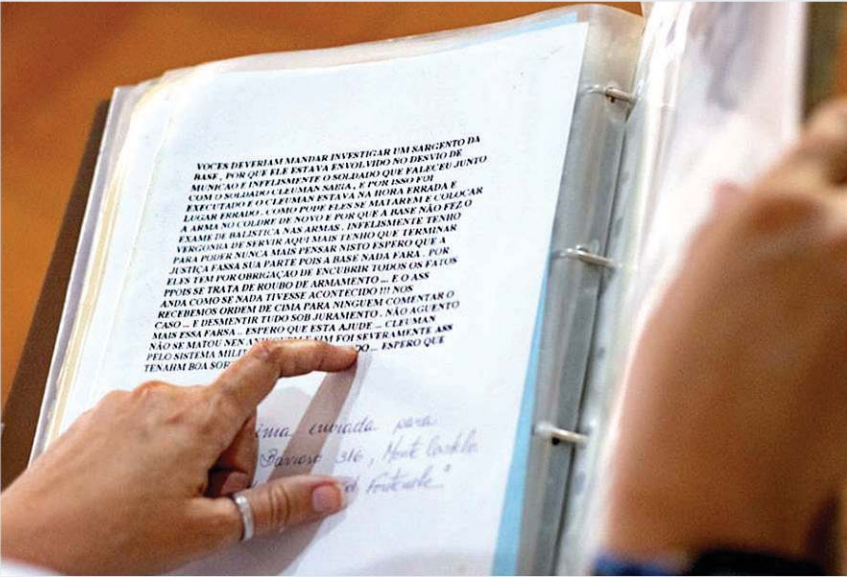 VOCES DEVERIAM MANDAR INVESTIGAR UM SARGENTO DA
BASE , POR QUE ELE ESTAVA ENVOLVIDO NO DESVIO DE
MUNICAO E INFELISMENTE O SOLDADO QUE FALECEU JUNTO
COM O SOLDADO CLEUMAN SABIA , E POR ISSO FOI
EXECUTADO E O CLEUMAN ESTAVA NA HORA ERRADA E
LUGAR ERRADO . COMO PODE ELES SE MATAREM E COLOCAR
A ARMA NO COLDRE DE NOVO E POR QUE A BASE NÃO FEZ O
EXAME DE BALISTICA NAS ARMAS . INFELISMENTE TENHO
VERGONHA DE SERVIR AQUI MAIS TENHO QUE TERMINAR
PARA PODER NUNCA MAIS PENSAR NISTO ESPERO QUE A
JUSTIÇA FASSA SUA PARTE POIS A BASE NADA FARA . POR
ELES TEM POR OBRIGAÇAO DE ENCUBRIR TODOS OS FATOS
PPOIS SE TRATA DE ROUBO DE ARMAMENTO ... E O ASS
ANDA COMO SE NADA TIVESSE ACONTECIDO !!! NOS
RECEBEMOS ORDEM DE CIMA PARA NINGUEM COMENTAR O
CASO ... E DESMENTIR TUDO SOB JURAMENTO . NÃO AGUENTO
MAIS ESSA FARSA .. ESPERO QUE ESTA AJUDE ... CLEUMAN
NÃO SE MATOU NEN A SIM FOI SEVERAMENTE ASS
PELO SISTEMA DO ... ESPERO QUE
TENAHM BOA
enviada para
316, Monte Castelo
Fontenele"